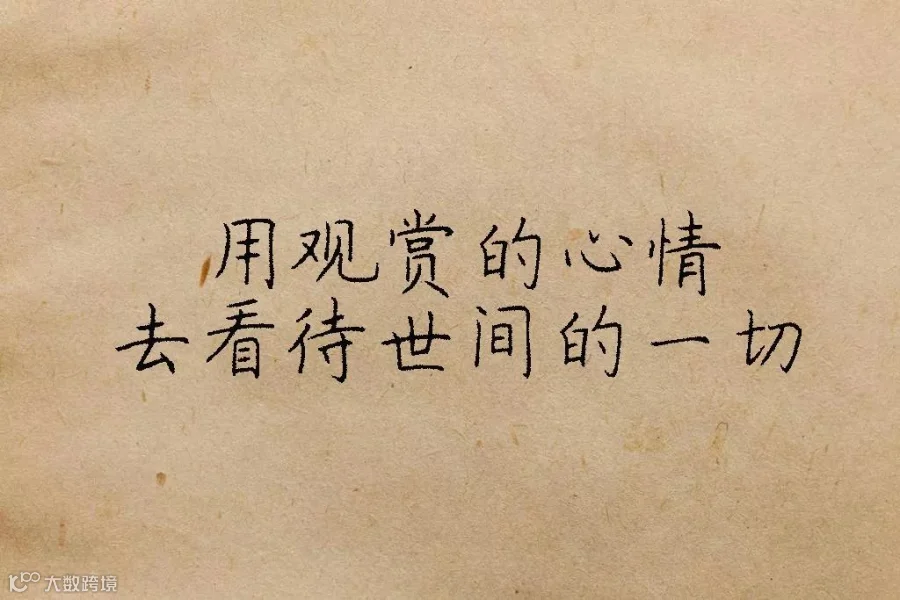 用观赏的心情
去看待世间的一切
大数跨境